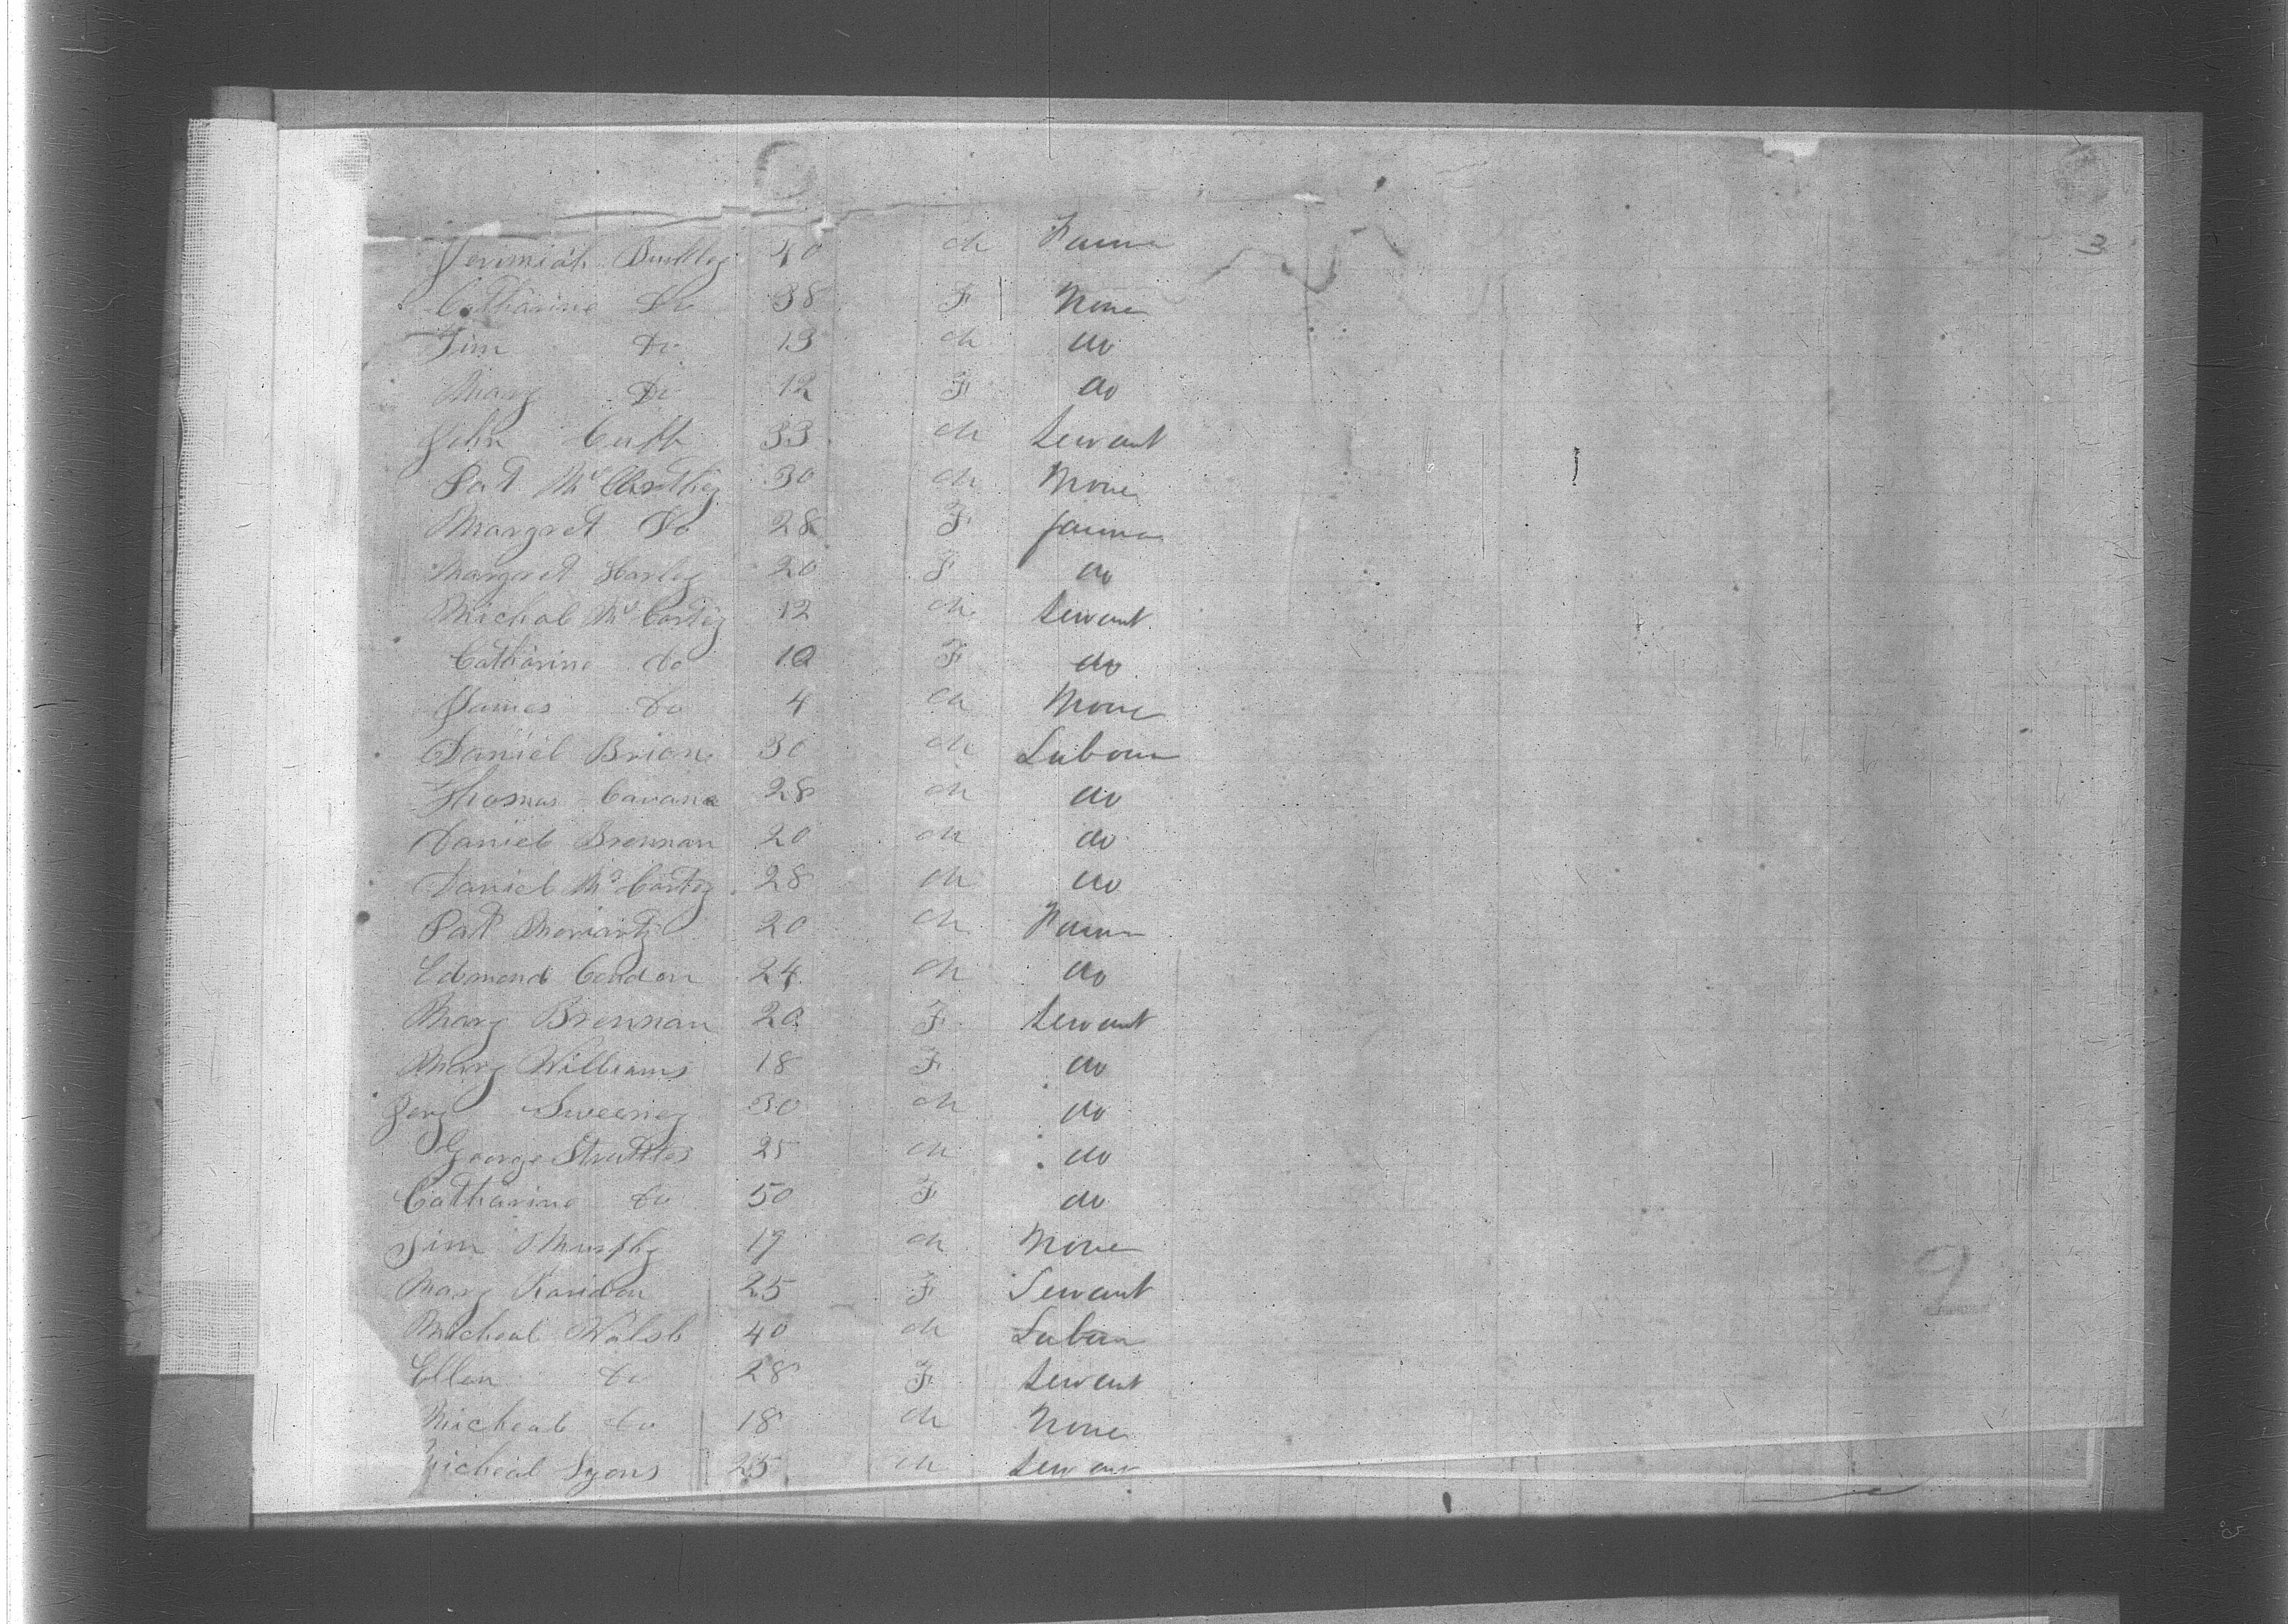 3
Jerimiah 40 M Farmer
Catharine Do 38 F None
Jim Do 13 M do
Mary Do 12 F do
John Cuff 33 M Servant
Pat McCarthy 30 M None
Margret Do 28 F farmer
Margret Harley 20 F do
Michal Mc Carty 12 M Servant
Catharine do 10 F do
James do 4 M None
Daniel Brian 30 M Labour
Thomas Cavana 28 M do
Daniel Brennan 20 M do
Daniel Mc Carty 28 M do
Pat Moriarty 20 M Farmer
Edmond Condon 24 M do
Mary Brennan 20 F Servant
Mary Williams 18 F do
Jery Sweeney 30 M do
George 25 M do
Catharine do 50 F do
Jim Murphy 17 M None
Mary 25 F Servant
Micheal Walsh 40 M Labour
Ellen do 28 F Servant
Micheal do 18 M None
Micheal Lyons 25 M Servant
9